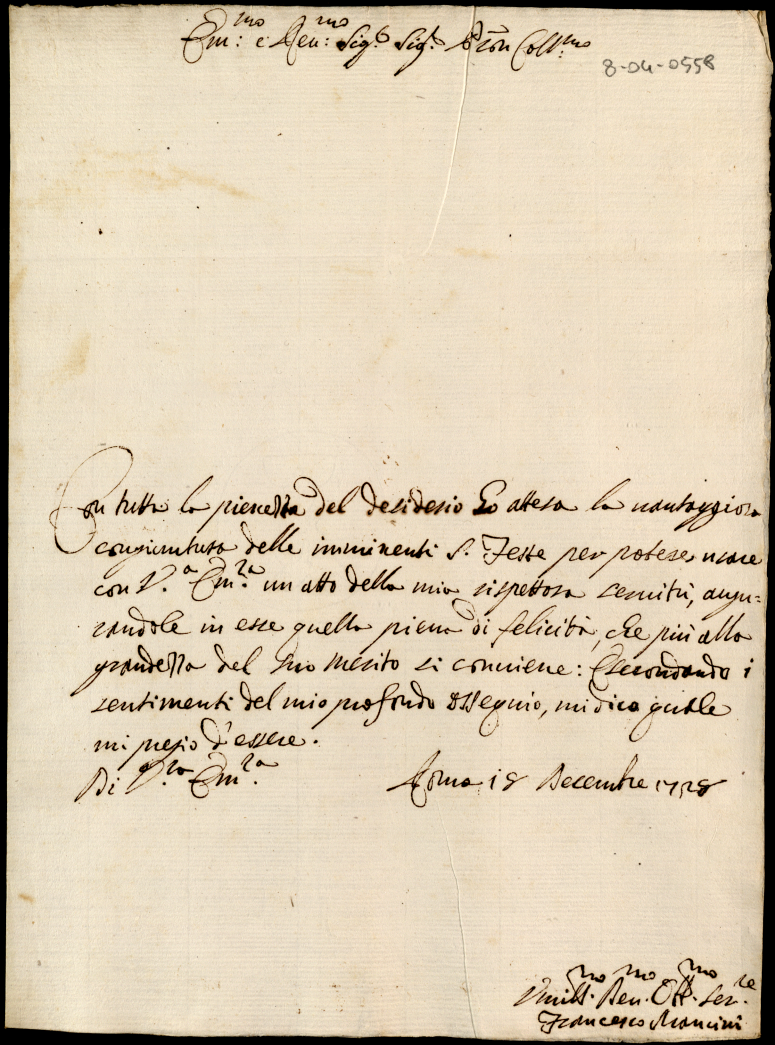 Em:mo e Reu:mo Sig.r Sig.r P̃ron Coll:mo
8-04-0558
Con tutta la pienezza del desiderio ho attesa la uantaggiosa
congiuntura delle imminenti S. Feste per potere usare
con V.a Em.za un atto della mia rispettosa seruitù, augu=
randole in esse quella piena di felicità, che più alla
grandezza del suo merito si conuiene: E secondando i
sentimenti del mio profondo ossequio, mi dico quale
mi pregio d'essere.
Di V.ra Em.za Roma 18 Decembre 1728
Vmill.mo Deu.mo Obb.mo Ser.re
Francesco Mancini